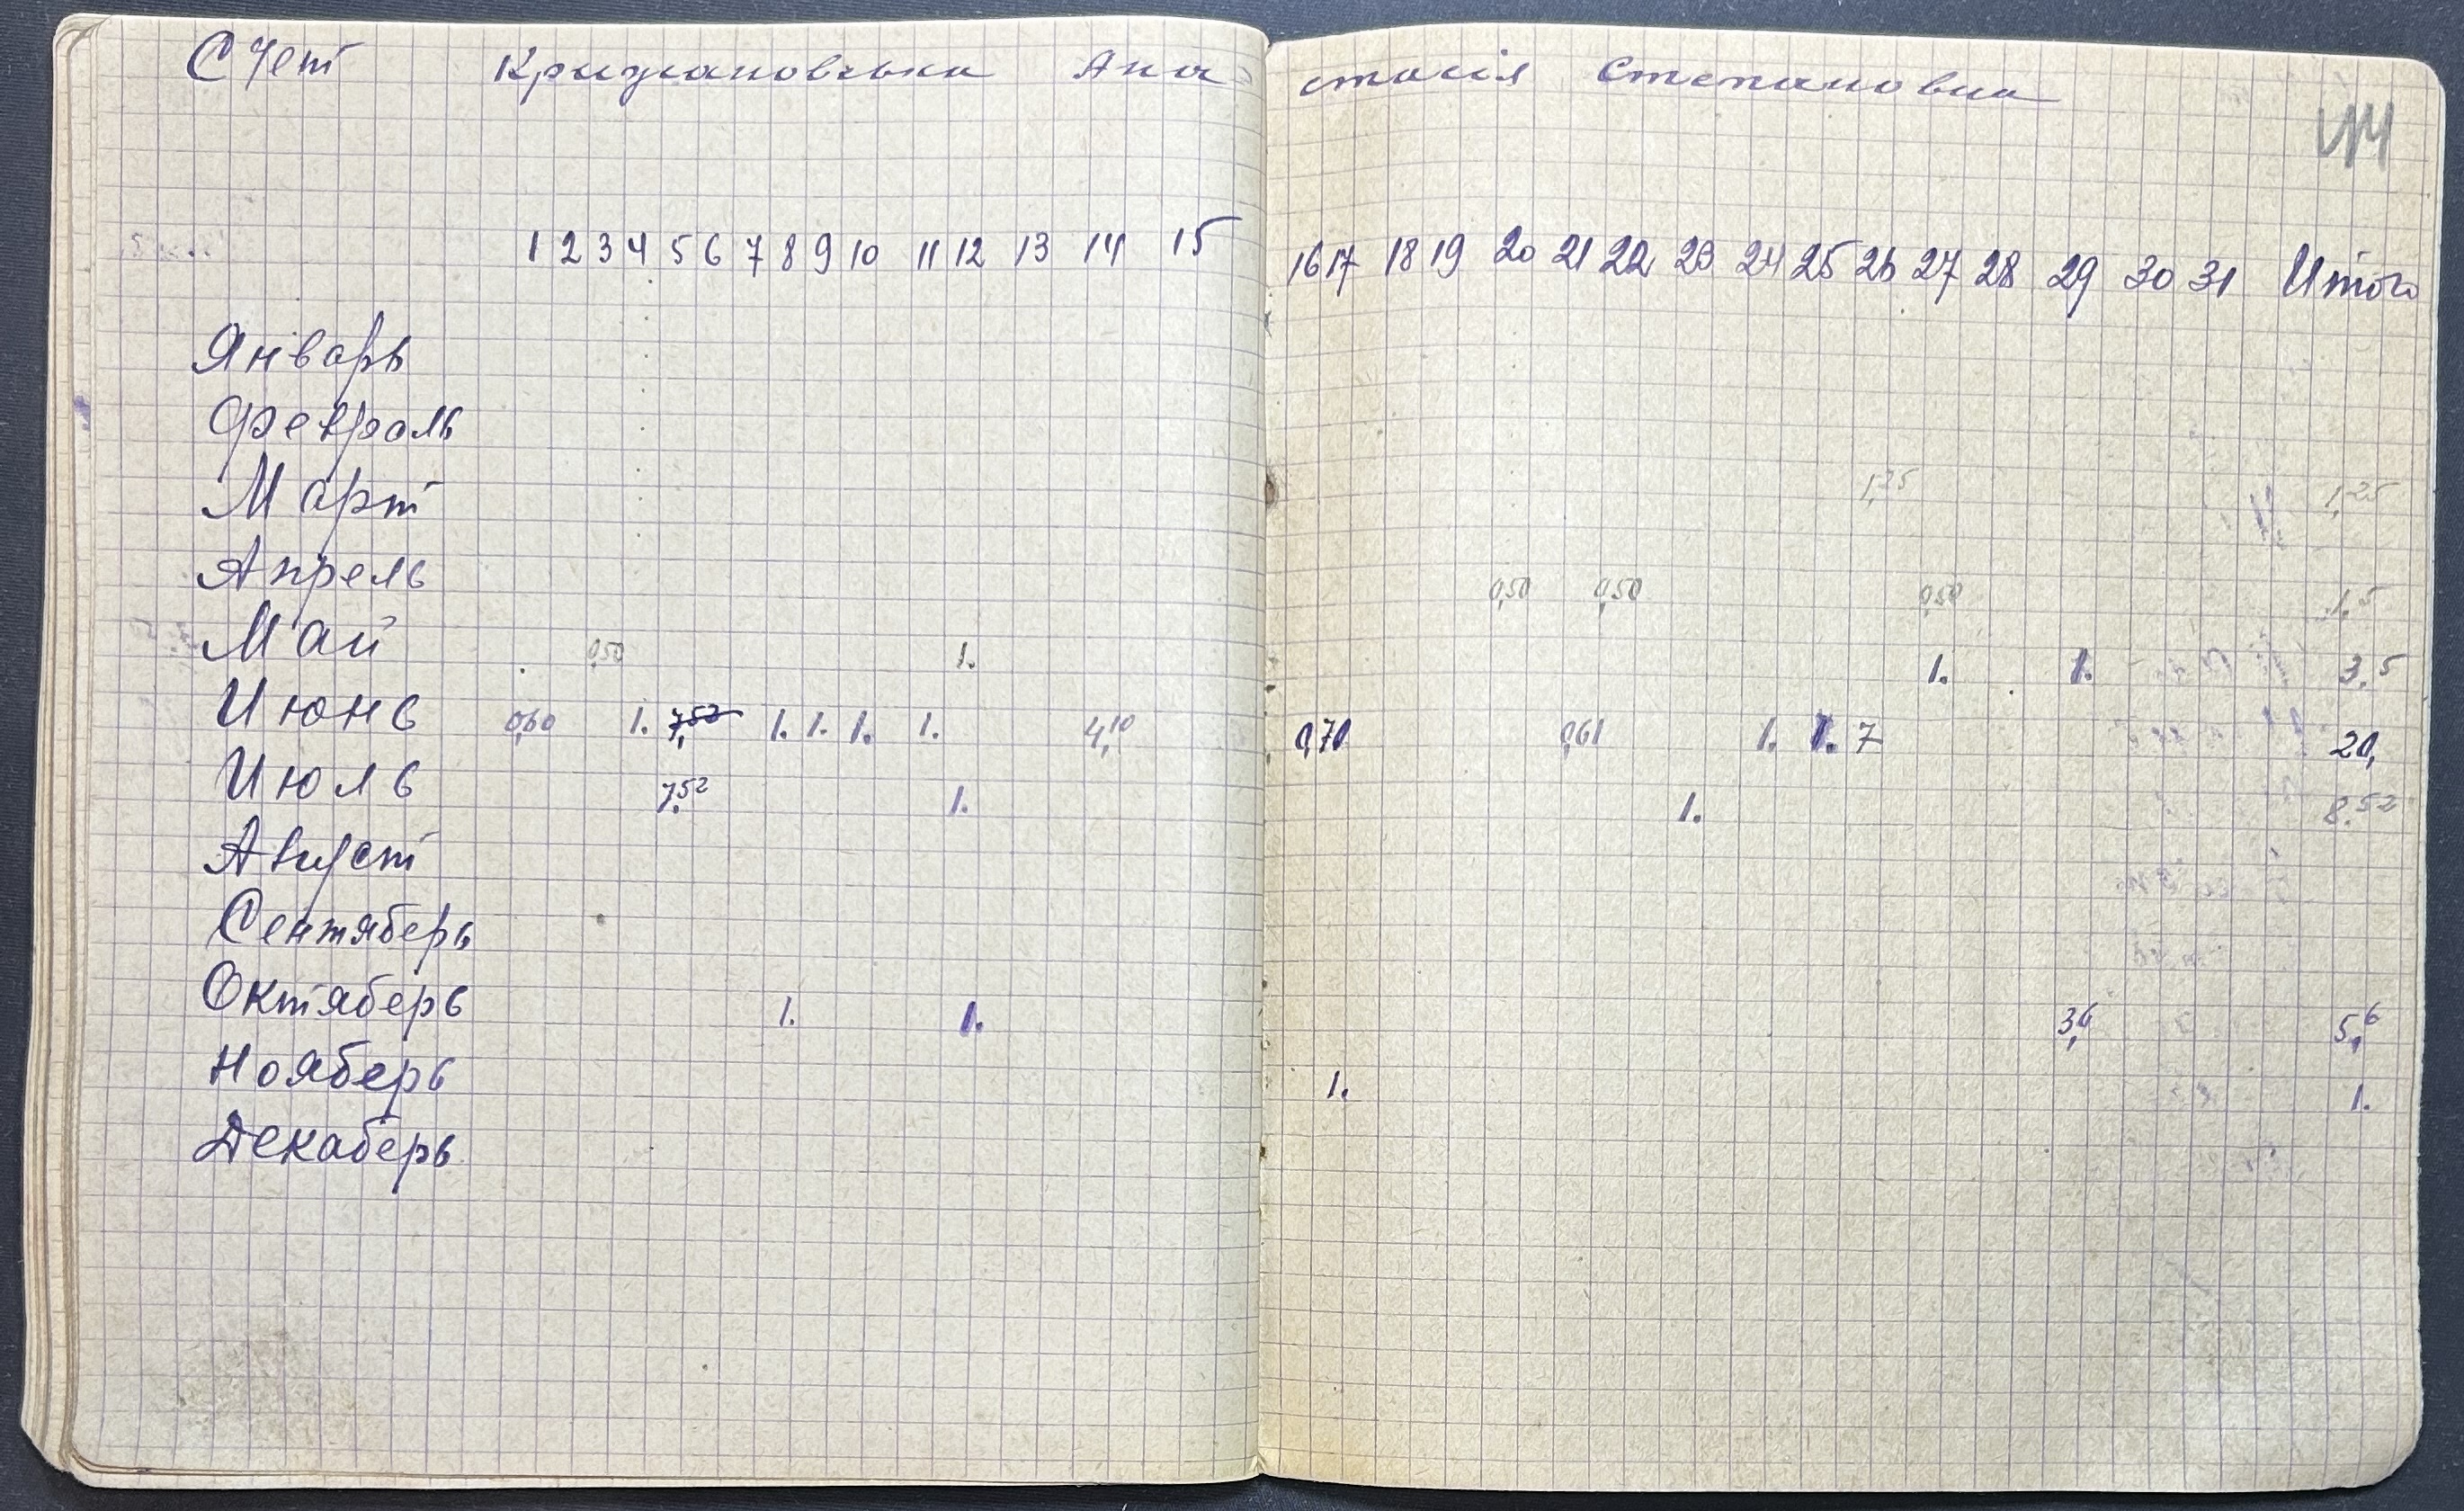 Счет Крижановська Ана
стасія Степановна
44
1 2 3 4 5 6 7 8 9 10 11 12 13 14 15 16 17 18 19 20 21 22 23 24 25 26 27 28 29 30 31 Итого
Январь
Февроль
Март 1,25 1,25
Апрель 0,50 0,50 0,50 1.5
Май 0,50 1. 1. 1. 3.5
Июнь 0,60 1. 7,52 1. 1. 1. 1. 4,10 0,70 0,61 1. 1. 7 20,
Июль 7.52 1. 1. 8.52
Август
Сентяберь
Октяберь 1. 1. 3,6 5,6
Нояберь 1. 1.
Декаберь